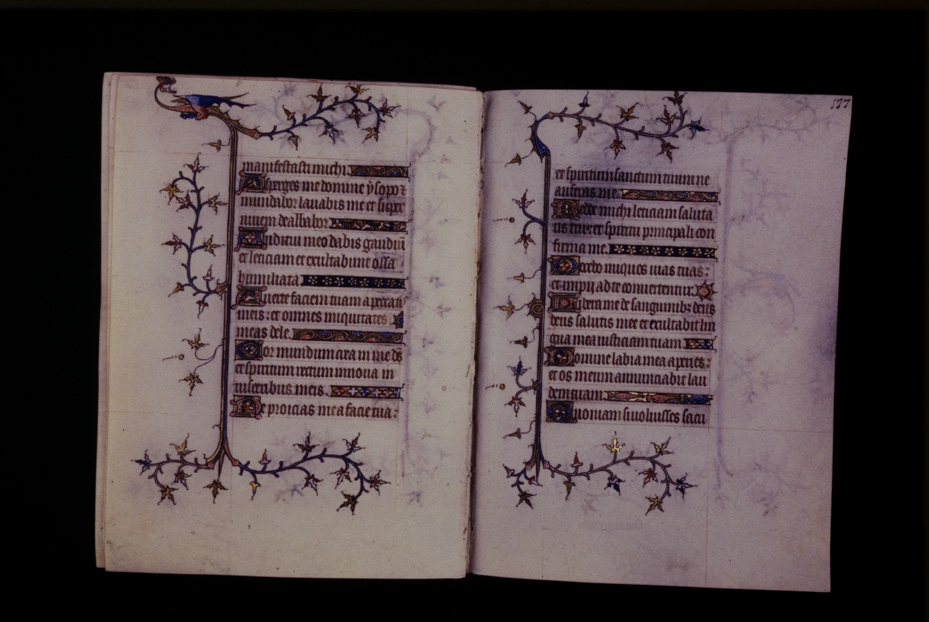 manifestasti michi.
Asperges me domine ysopo ⁊
mundabor lavabis me et super
nivem dealbabor.
Auditui meo dabis gaudiū
et leticiam et exultabunt ossa
humiliata
Averte faciem tuam a peccatis
meis: et omnes iniquitates
meas dele.
Cor mundum crea in me ds
et spiritum rectum innova in
visceribus meis.
Ne proicias me a facie tua:
177
et spiritum sanctum tuum ne
auferas me.
Redde michi leticiam saluta
ris tui: et spiritu principali con
firma me.
Docebo iniquos vias tuas:
et impij ad te convertentur.
Libera me de sanguinibꝫ deus
deus salutis mee et exultabit lin
gua mea iusticiam tuam
Domine labia mea aperies:
et os meum annunciabit lau
dem tuam.
Quoniam si voluisses sacri